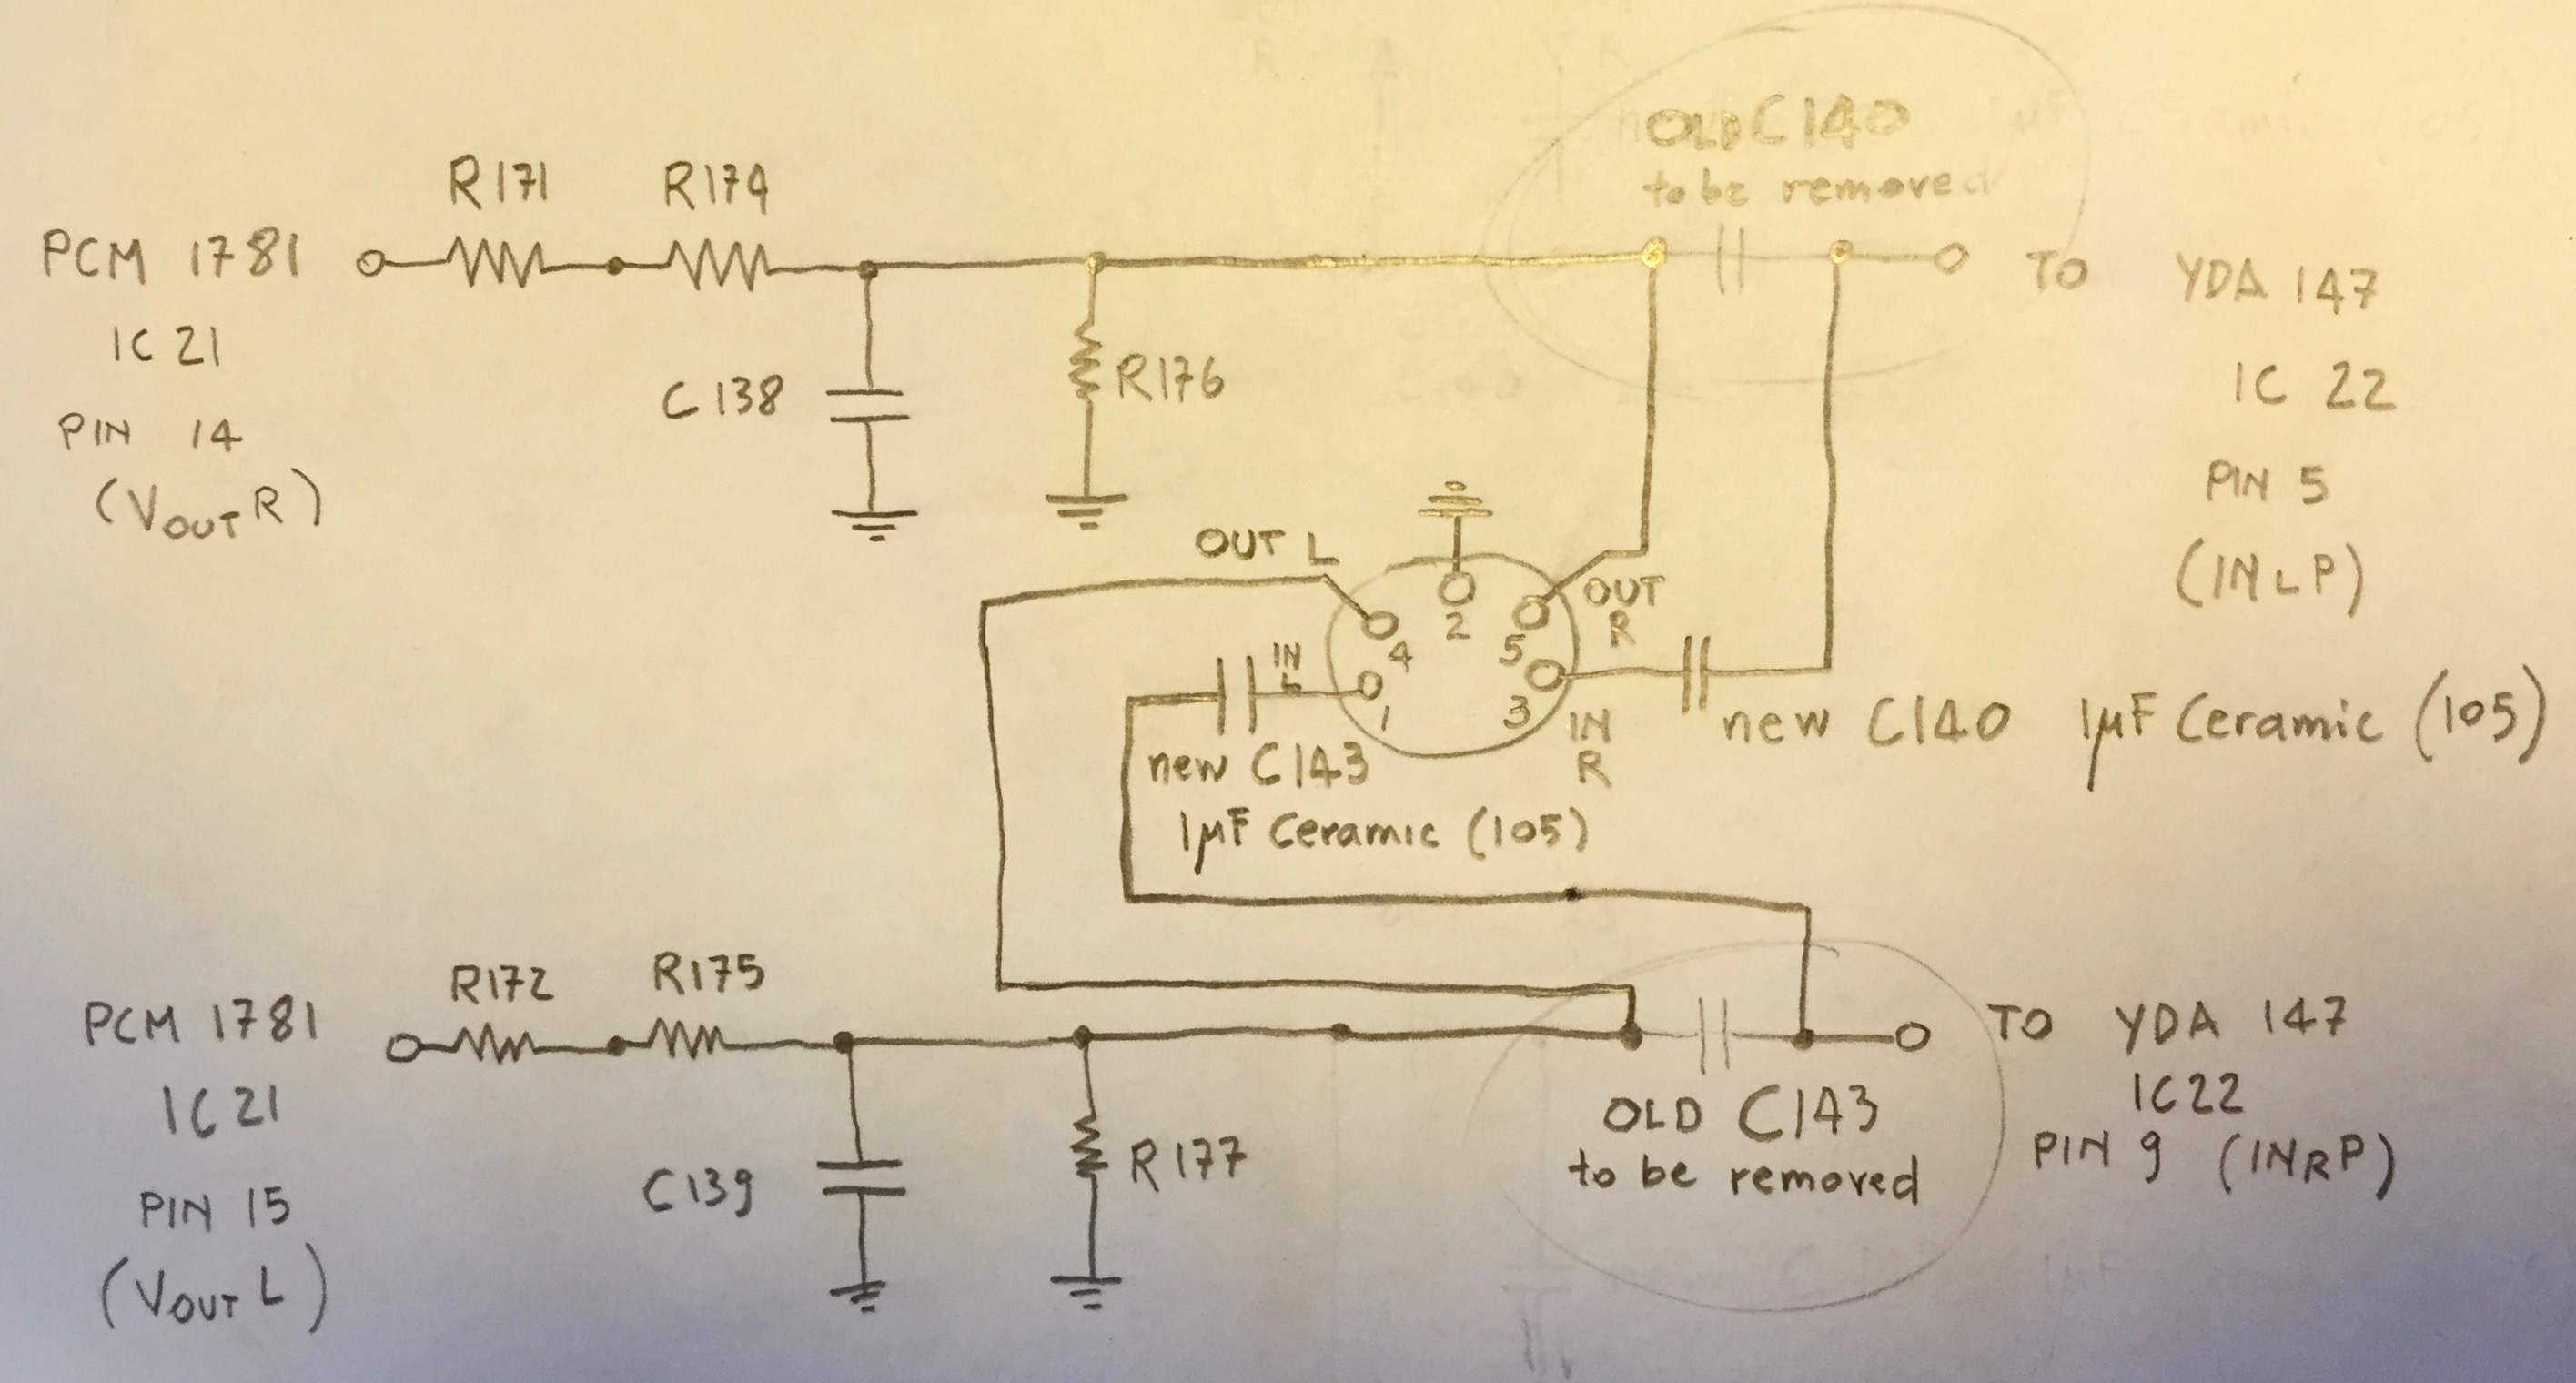 OLD C140
to be removed
R171 R174
PCM 1781
IC 21
PIN 14
(VOUT R)
C138
R176
TO YDA 147
IC 22
PIN 5
(INLP)
OUT L
OUT
R
4 2 5
IN
L
1 3
IN
R
new C140 1μF Ceramic (105)
new C143
1μF Ceramic (105)
R172 R175
PCM 1781
IC 21
PIN 15
(VOUT L)
C139
R177
OLD C143
to be removed
TO YDA 147
IC22
PIN 9 (INRP)